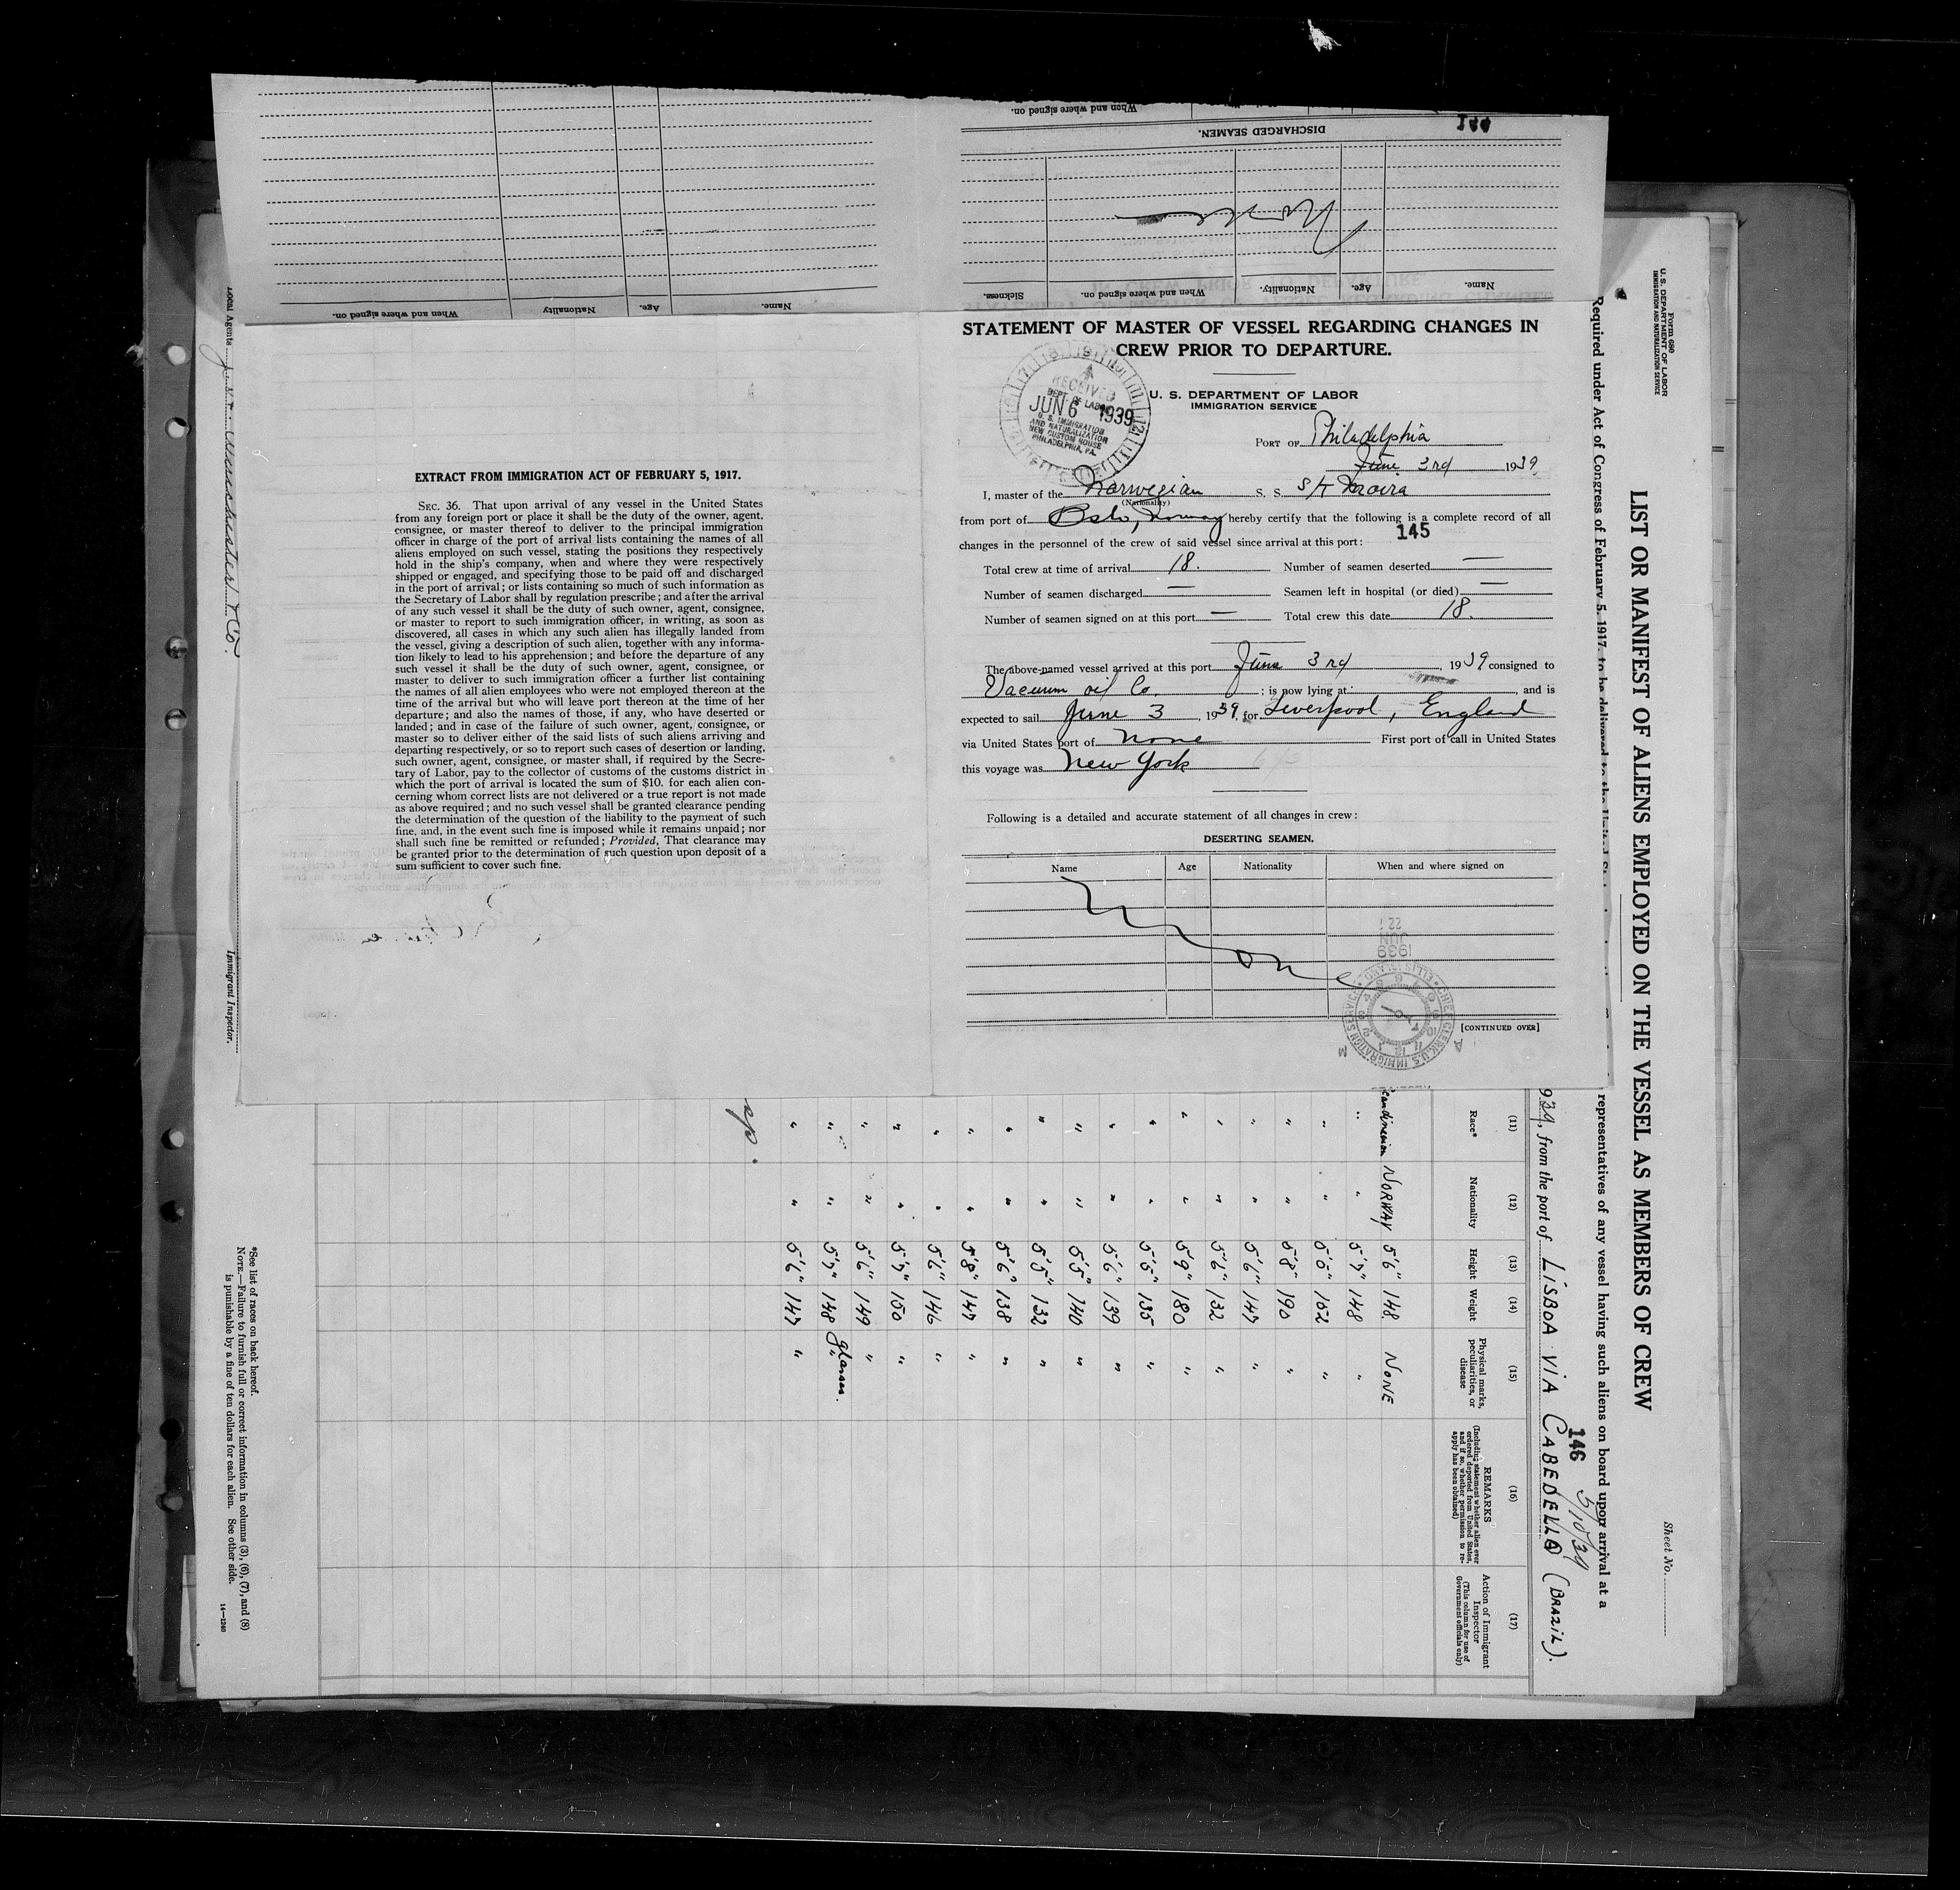 When and where signed on.
DISCHARGED SEAMEN.
144
None
Name.
Age.
Nationality.
When and where signed on.
Sickness.
Name.
Age.
Nationality
When and where signed on.
STATEMENT OF MASTER OF VESSEL REGARDING CHANGES IN
CREW PRIOR TO DEPARTURE.
RECEIVED
DEPT OF LABOR
JUN 6 1939
U. S. IMMIGRATION
AND NATURALIZATION
NEW CUSTOM HOUSE
PHILADELPHIA, PA.
U. S. DEPARTMENT OF LABOR
IMMIGRATION SERVICE
PORT OF Philadelphia
June 3rd 1939
I, master of the Norwegian S. S. S/T
(Nationality)
from port of Oslo, Norway hereby certify that the following is a complete record of all
145
changes in the personnel of the crew of said vessel since arrival at this port:
Total crew at time of arrival 18. Number of seamen deserted —
Number of seamen discharged — Seamen left in hospital (or died) —
Number of seamen signed on at this port — Total crew this date 18.
The above-named vessel arrived at this port June 3rd, 1939 consigned to
Vacuum oil Co. ; is now lying at , and is
expected to sail June 3, 1939, for Liverpool, England
via United States port of none First port of call in United States
this voyage was New York
Following is a detailed and accurate statement of all changes in crew:
DESERTING SEAMEN.
Name Age Nationality When and where signed on
None
22
JUN
1939
CHIEF CLERK, U.S. IMMIGRATION SERVICE ELLIS ISLAND
A M
[CONTINUED OVER]
EXTRACT FROM IMMIGRATION ACT OF FEBRUARY 5, 1917.
SEC. 36. That upon arrival of any vessel in the United States
from any foreign port or place it shall be the duty of the owner, agent,
consignee, or master thereof to deliver to the principal immigration
officer in charge of the port of arrival lists containing the names of all
aliens employed on such vessel, stating the positions they respectively
hold in the ship's company, when and where they were respectively
shipped or engaged, and specifying those to be paid off and discharged
in the port of arrival; or lists containing so much of such information as
the Secretary of Labor shall by regulation prescribe; and after the arrival
of any such vessel it shall be the duty of such owner, agent, consignee,
or master to report to such immigration officer, in writing, as soon as
discovered, all cases in which any such alien has illegally landed from
the vessel, giving a description of such alien, together with any informa-
tion likely to lead to his apprehension; and before the departure of any
such vessel it shall be the duty of such owner, agent, consignee, or
master to deliver to such immigration officer a further list containing
the names of all alien employees who were not employed thereon at the
time of the arrival but who will leave port thereon at the time of her
departure; and also the names of those, if any, who have deserted or
landed; and in case of the failure of such owner, agent, consignee, or
master so to deliver either of the said lists of such aliens arriving and
departing respectively, or so to report such cases of desertion or landing,
such owner, agent, consignee, or master shall, if required by the Secre-
tary of Labor, pay to the collector of customs of the customs district in
which the port of arrival is located the sum of $10. for each alien con-
cerning whom correct lists are not delivered or a true report is not made
as above required; and no such vessel shall be granted clearance pending
the determination of the question of the liability to the payment of such
fine, and, in the event such fine is imposed while it remains unpaid; nor
shall such fine be remitted or refunded; Provided, That clearance may
be granted prior to the determination of such question upon deposit of a
sum sufficient to cover such fine.
Form 680
U. S. DEPARTMENT OF LABOR
IMMIGRATION AND NATURALIZATION SERVICE
Sheet No.
LIST OR MANIFEST OF ALIENS EMPLOYED ON THE VESSEL AS MEMBERS OF CREW
Required under Act of Congress of February 5, 1917, to be delivered to the United
representatives of any vessel having such aliens on board upon arrival at a
146 5/10/39
939, from the port of LISBOA VIA CABEDELLO (BRAZIL).
(11) (12) (13) (14) (15) (16) (17)
Race* Nationality Height Weight Physical marks, peculiarities, or disease REMARKS (Including statement whether alien ever ordered deported from United States, and if so, whether permission to re-apply has been obtained) Action of Immigrant Inspector (This column for use of Government officials only)
Scandinavian NORWAY 5'6" 148 NONE
" " 5'7" 148 "
" " 5'5" 152 "
" " 5'8" 190 "
" " 5'6" 147 "
" " 5'6" 132 "
" " 5'9" 180 "
" " 5'5" 135 "
" " 5'6" 139 "
" " 5'5" 140 "
" " 5'5" 132 "
" " 5'6" 138 "
" " 5'8" 147 "
" " 5'6" 146 "
" " 5'7" 150 "
" " 5'6" 149 "
" " 5'7" 148 glasses.
" " 5'6" 147 "
*See list of races on back hereof.
NOTE.—Failure to furnish full or correct information in columns (3), (6), (7), and (8)
is punishable by a fine of ten dollars for each alien. See other side.
14—1240
Local Agents
Immigrant Inspector.